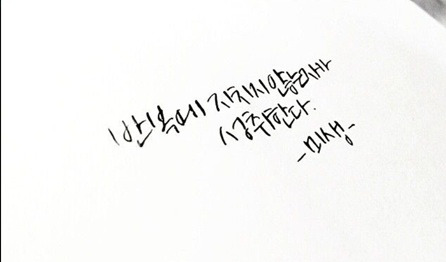 반복에 지치지 않는 자가
성취한다.
- 미생 -